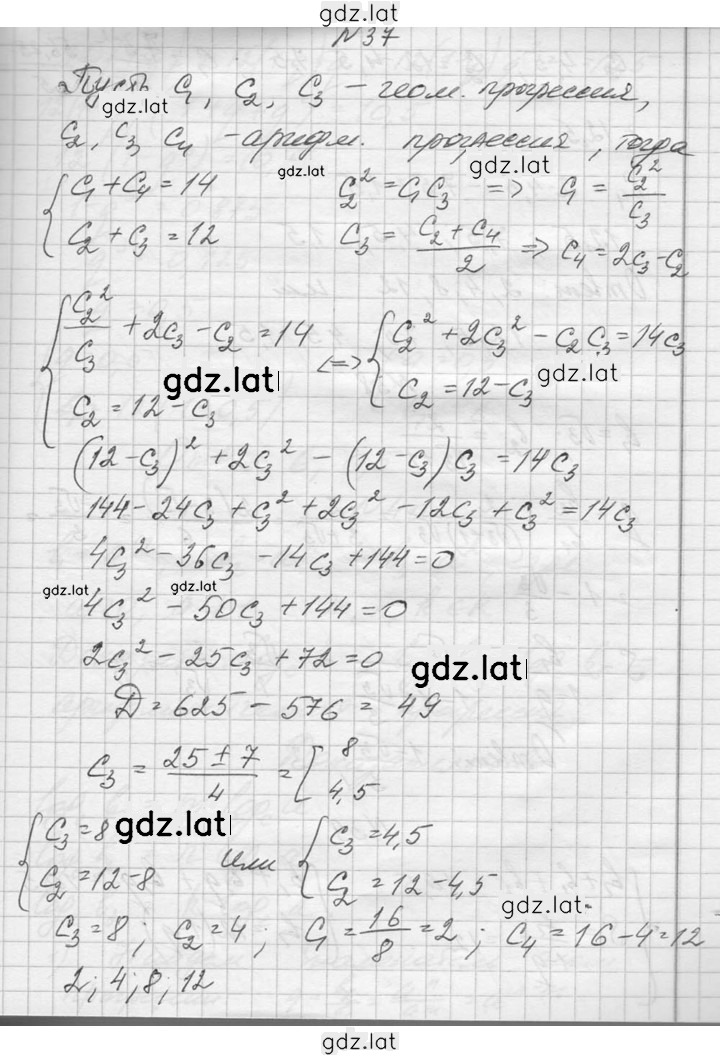 gdz.lat
№37
Пусть c₁, c₂, c₃ – геом. прогрессия,
gdz.lat
c₂, c₃ c₄ – арифм. прогрессия, тогда
gdz.lat gdz.lat
{ c₁ + c₄ = 14 c₂² = c₁c₃ => c₁ = c₂²/c₃
{ c₂ + c₃ = 12 c₃ = (c₂ + c₄)/2 => c₄ = 2c₃ - c₂
{ c₂²/c₃ + 2c₃ - c₂ = 14 <=> { c₂² + 2c₃² - c₂c₃ = 14c₃
gdz.lat gdz.lat
{ c₂ = 12 - c₃ { c₂ = 12 - c₃
(12 - c₃)² + 2c₃² - (12 - c₃)c₃ = 14c₃
144 - 24c₃ + c₃² + 2c₃² - 12c₃ + c₃² = 14c₃
gdz.lat
4c₃² - 36c₃ - 14c₃ + 144 = 0
gdz.lat gdz.lat
4c₃² - 50c₃ + 144 = 0
2c₃² - 25c₃ + 72 = 0
gdz.lat
D = 625 - 576 = 49
c₃ = (25 ± 7)/4 = [ 8
4,5
{ c₃ = 8 gdz.lat или { c₃ = 4,5
{ c₂ = 12 - 8 { c₂ = 12 - 4,5
gdz.lat
c₃ = 8; c₂ = 4; c₁ = 16/8 = 2; c₄ = 16 - 4 = 12
2; 4; 8; 12
gdz.lat